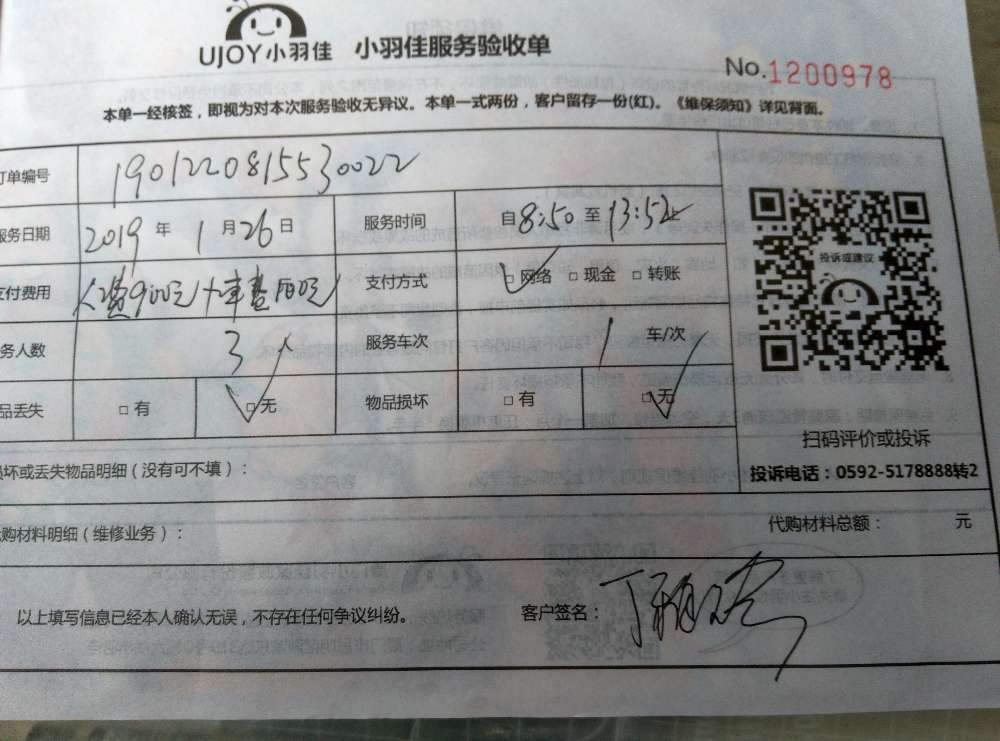 UJOY小羽佳 小羽佳服务验收单
No.1200978
本单一经核签，即视为对本次服务验收无异议。本单一式两份，客户留存一份(红)。《维保须知》详见背面。
订单编号 1901220815530022
服务日期 2019 年 1 月 26 日 服务时间 自 8:50 至 13:52 止
支付费用 人费900元+车费100元 支付方式 □网络 □现金 □转账
务人数 3人 服务车次 1 车/次
品丢失 □有 □无 物品损坏 □有 □无
投诉或建议
扫码评价或投诉
投诉电话：0592-5178888转2
损坏或丢失物品明细（没有可不填）：
代购材料明细（维修业务）： 代购材料总额： 元
以上填写信息已经本人确认无误，不存在任何争议纠纷。 客户签名：